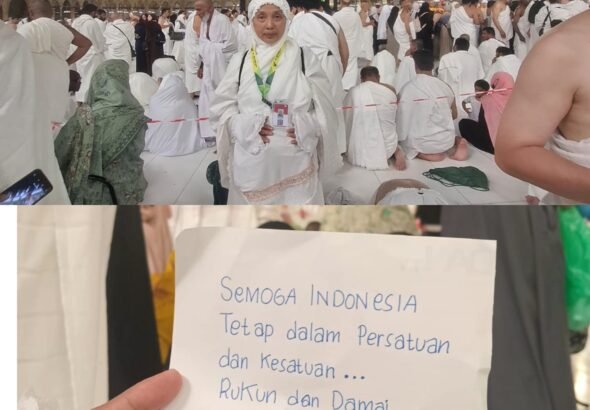 SEMOGA INDONESIA
Tetap dalam Persatuan
dan Kesatuan ...
Rukun dan Damai